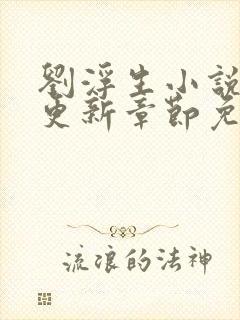 劉浮生小說
更新章節免
流浪的法神